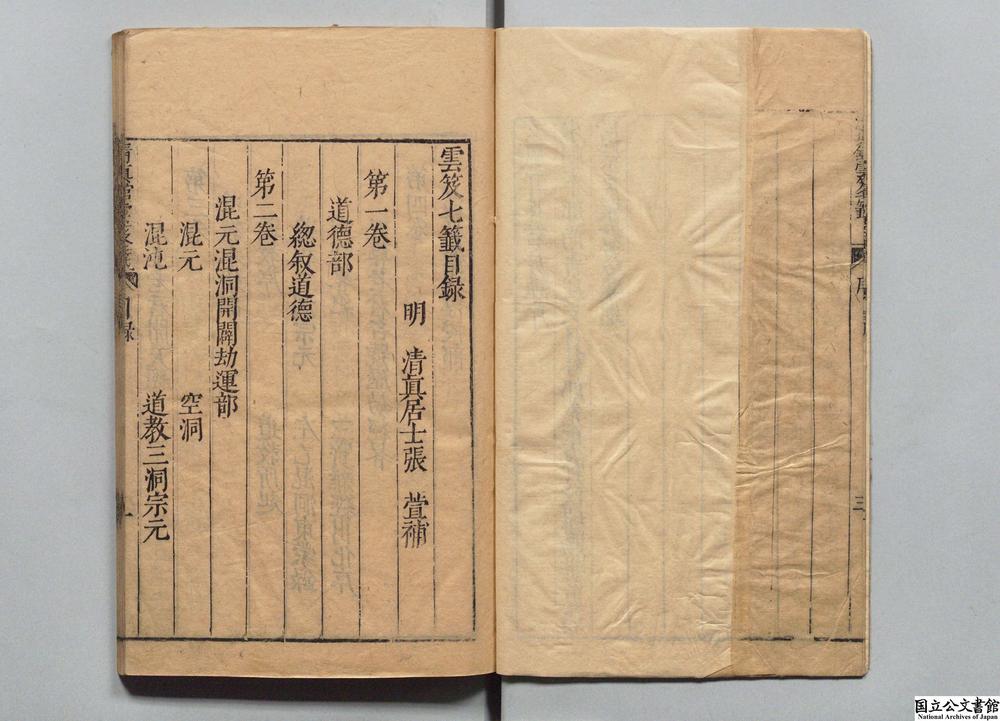 雲笈七籤目録
明 清真居士張 萱補
第一卷
道德部
緫叙道德
第二卷
混元混洞開闢劫運部
混元 空洞
混沌 道教三洞宗元
目録
一
三
国立公文書館
National Archives of Japan